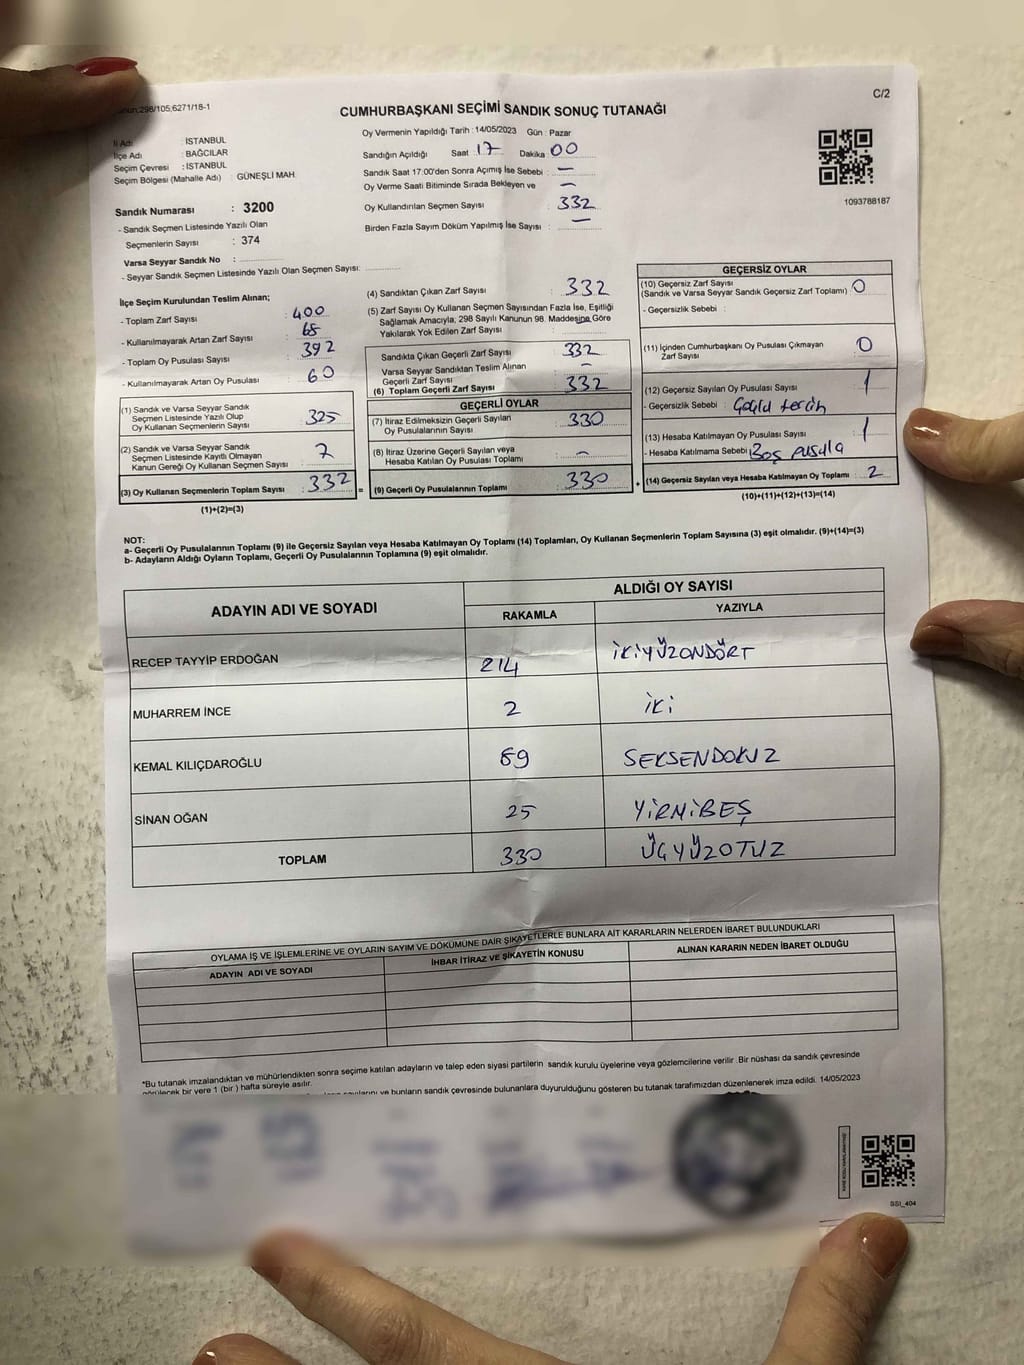 298/105;6271/18-1
C/2
CUMHURBAŞKANI SEÇİMİ SANDIK SONUÇ TUTANAĞI
İl Adı : İSTANBUL
İlçe Adı : BAĞCILAR
Seçim Çevresi : İSTANBUL
Seçim Bölgesi (Mahalle Adı) : GÜNEŞLİ MAH.
Sandık Numarası : 3200
- Sandık Seçmen Listesinde Yazılı Olan
Seçmenlerin Sayısı : 374
Varsa Seyyar Sandık No :
- Seyyar Sandık Seçmen Listesinde Yazılı Olan Seçmen Sayısı:
Oy Vermenin Yapıldığı Tarih : 14/05/2023 Gün : Pazar
Sandığın Açıldığı Saat 17 Dakika 00
Sandık Saat 17:00'den Sonra Açımış İse Sebebi : —
Oy Verme Saati Bitiminde Sırada Bekleyen ve —
Oy Kullandırılan Seçmen Sayısı : 332
Birden Fazla Sayım Döküm Yapılmış İse Sayısı : —
1093788187
İlçe Seçim Kurulundan Teslim Alınan;
- Toplam Zarf Sayısı : 400
- Kullanılmayarak Artan Zarf Sayısı : 68
- Toplam Oy Pusulası Sayısı : 392
- Kullanılmayarak Artan Oy Pusulası : 60
(1) Sandık ve Varsa Seyyar Sandık
Seçmen Listesinde Yazılı Olup
Oy Kullanan Seçmenlerin Sayısı : 325
(2) Sandık ve Varsa Seyyar Sandık
Seçmen Listesinde Kayıtlı Olmayan
Kanun Gereği Oy Kullanan Seçmen Sayısı : 7
(3) Oy Kullanan Seçmenlerin Toplam Sayısı : 332
(1)+(2)=(3)
(4) Sandıktan Çıkan Zarf Sayısı : 332
(5) Zarf Sayısı Oy Kullanan Seçmen Sayısından Fazla İse, Eşitliği
Sağlamak Amacıyla; 298 Sayılı Kanunun 98. Maddesine Göre
Yakılarak Yok Edilen Zarf Sayısı :
Sandıkta Çıkan Geçerli Zarf Sayısı : 332
Varsa Seyyar Sandıktan Teslim Alınan
Geçerli Zarf Sayısı : —
(6) Toplam Geçerli Zarf Sayısı : 332
GEÇERLİ OYLAR
(7) İtiraz Edilmeksizin Geçerli Sayılan
Oy Pusulalarının Sayısı : 330
(8) İtiraz Üzerine Geçerli Sayılan veya
Hesaba Katılan Oy Pusulası Toplamı : —
= (9) Geçerli Oy Pusulalarının Toplamı : 330
GEÇERSİZ OYLAR
(10) Geçersiz Zarf Sayısı
(Sandık ve Varsa Seyyar Sandık Geçersiz Zarf Toplamı) : 0
- Geçersizlik Sebebi :
(11) İçinden Cumhurbaşkanı Oy Pusulası Çıkmayan
Zarf Sayısı : 0
(12) Geçersiz Sayılan Oy Pusulası Sayısı : 1
- Geçersizlik Sebebi : Çoğlu tercih
(13) Hesaba Katılmayan Oy Pusulası Sayısı : 1
- Hesaba Katılmama Sebebi : Boş pusula
+ (14) Geçersiz Sayılan veya Hesaba Katılmayan Oy Toplamı : 2
(10)+(11)+(12)+(13)=(14)
NOT:
a- Geçerli Oy Pusulalarının Toplamı (9) ile Geçersiz Sayılan veya Hesaba Katılmayan Oy Toplamı (14) Toplamları, Oy Kullanan Seçmenlerin Toplam Sayısına (3) eşit olmalıdır. (9)+(14)=(3)
b- Adayların Aldığı Oyların Toplamı, Geçerli Oy Pusulalarının Toplamına (9) eşit olmalıdır.
ADAYIN ADI VE SOYADI ALDIĞI OY SAYISI
RAKAMLA YAZIYLA
RECEP TAYYİP ERDOĞAN 214 İKİYÜZONDÖRT
MUHARREM İNCE 2 İKİ
KEMAL KILIÇDAROĞLU 89 SEKSENDOKUZ
SİNAN OĞAN 25 YİRMİBEŞ
TOPLAM 330 ÜÇYÜZOTUZ
OYLAMA İŞ VE İŞLEMLERİNE VE OYLARIN SAYIM VE DÖKÜMÜNE DAİR ŞİKAYETLERLE BUNLARA AİT KARARLARIN NELERDEN İBARET BULUNDUKLARI
ADAYIN ADI VE SOYADI İHBAR İTİRAZ VE ŞİKAYETİN KONUSU ALINAN KARARIN NEDEN İBARET OLDUĞU
*Bu tutanak imzalandıktan ve mühürlendikten sonra seçime katılan adayların ve talep eden siyasi partilerin sandık kurulu üyelerine veya gözlemcilerine verilir. Bir nüshası da sandık çevresinde
görülecek bir yere 1 (bir) hafta süreyle asılır.
sayılarını ve bunların sandık çevresinde bulunanlara duyurulduğunu gösteren bu tutanak tarafımızdan düzenlenerek imza edildi. 14/05/2023
SSI_404